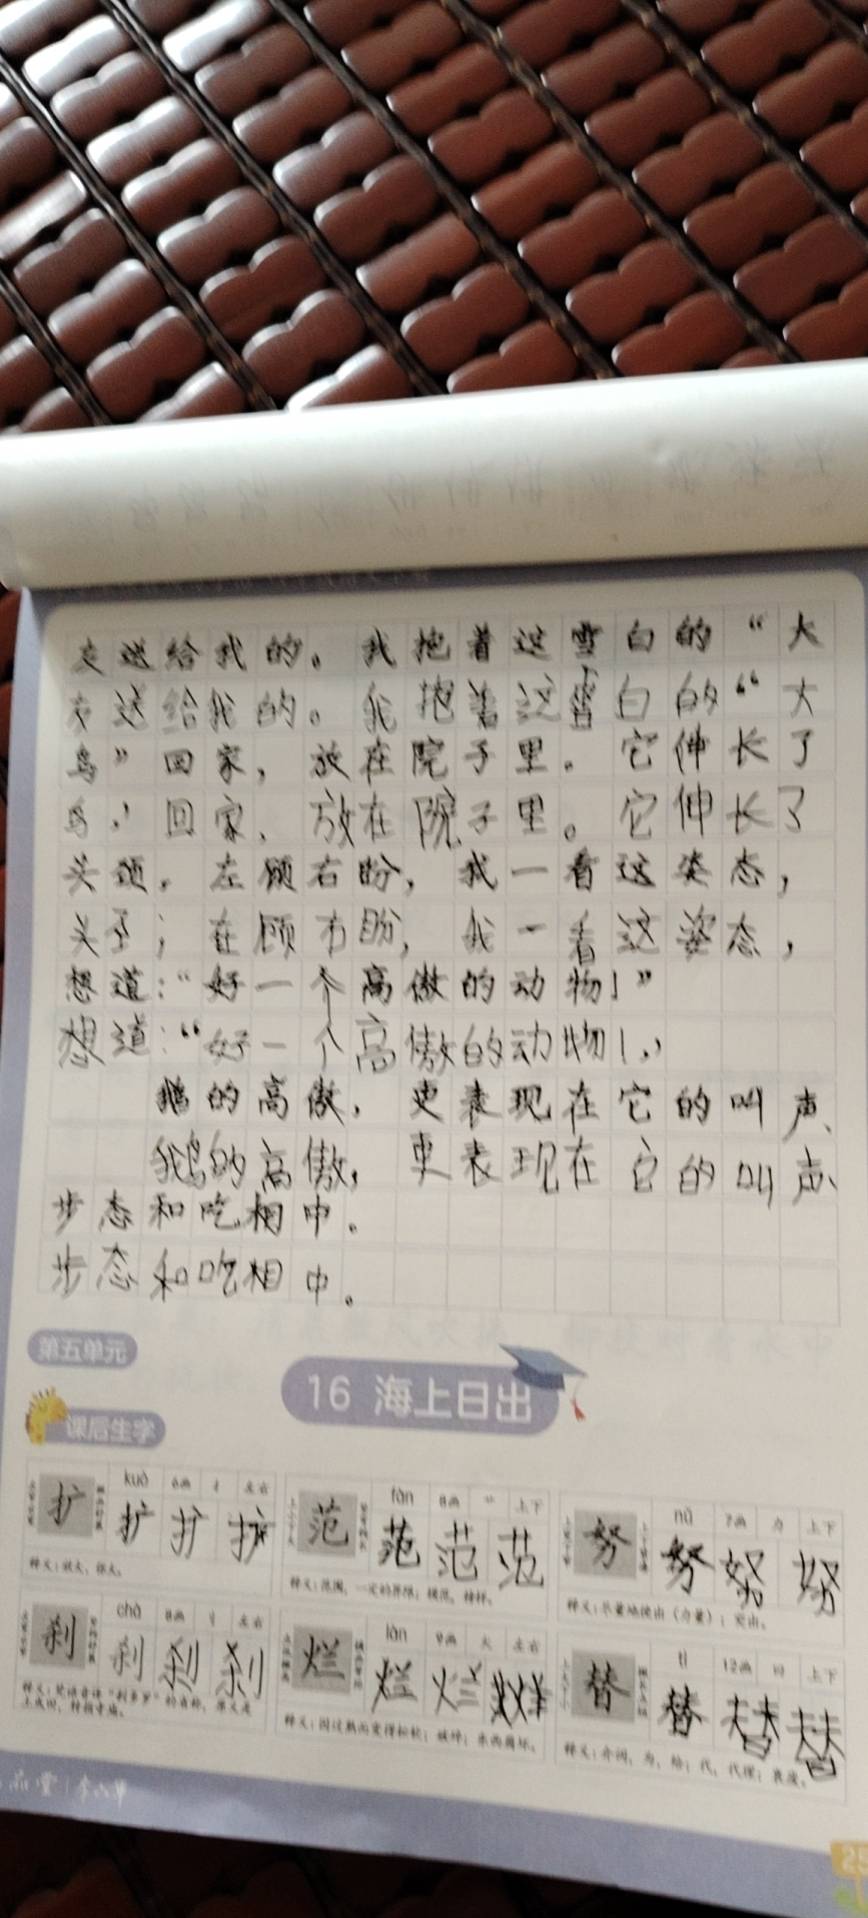 友送给我的。我抱着这雪白的“大
友送给我的。我抱着这雪白的“大
鸟”回家，放在院子里。它伸长了
鸟”回家、放在院子里。它伸长了
头颈，左顾右盼，我一看这姿态，
头至；在顾右盼，我一看这姿态，
想道：“好一个高傲的动物！”
想道：“好一个高傲的动物！”
鹅的高傲，更表现在它的叫声、
鹅的高傲，更表现在它的叫声、
步态和吃相中。
步态和吃相中。
第五单元
16 海上日出
课后生字
kuò 6画 扌 左右
扩 扩 扩 扩
释义：放大，张大。
fàn 8画 艹 上下
范 范 范 范
释义：范围，一定的界限；模范，榜样。
nǔ 7画 力 上下
努 努 努 努
释义：尽量地使出（力量）；突出。
chà 8画 刂 左右
刹 刹 刹 刹
释义：梵语音译“刹多罗”的省称，原义是土或田，转指寺庙。
làn 9画 火 左右
烂 烂 烂 烂
释义：因过熟而变得松软；破碎；东西腐坏。
tì 12画 曰 上下
替 替 替 替
释义：介词，为，给；代，代理；衰废。
25